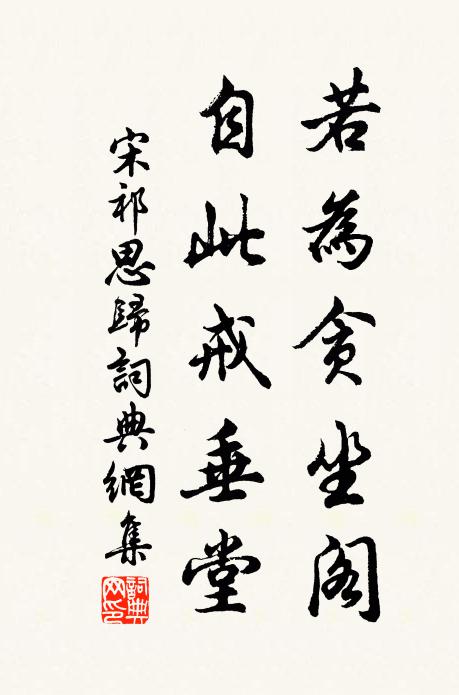 若為貪坐閣
自此戒垂堂
宋祁思歸詞典網集
詞典网印